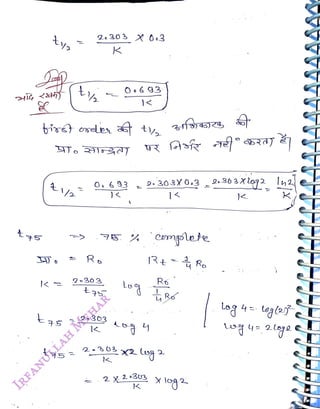 t₁/₂ = 2.303/K × 0.3
याद रखना है
t₁/₂ = 0.693/K
first order की t₁/₂ अभिकारक की
प्रा० सान्द्रता पर निर्भर नहीं करता है।
t₁/₂ = 0.693/K = 2.303×0.3/K = 2.303×log2/K = ln2/K
t75 ⇒ 75 % complete
प्रा० = R₀ Rt = 1/4 R₀
K = 2.303/t75 log R₀/(1/4 R₀)
log 4 = log(2)²
log 4 = 2log2
t75 = 2.303/K log 4
t75 = 2.303/K × 2 log 2
= 2 × 2.303/K × log 2
IRFANULLAH MAZHAR